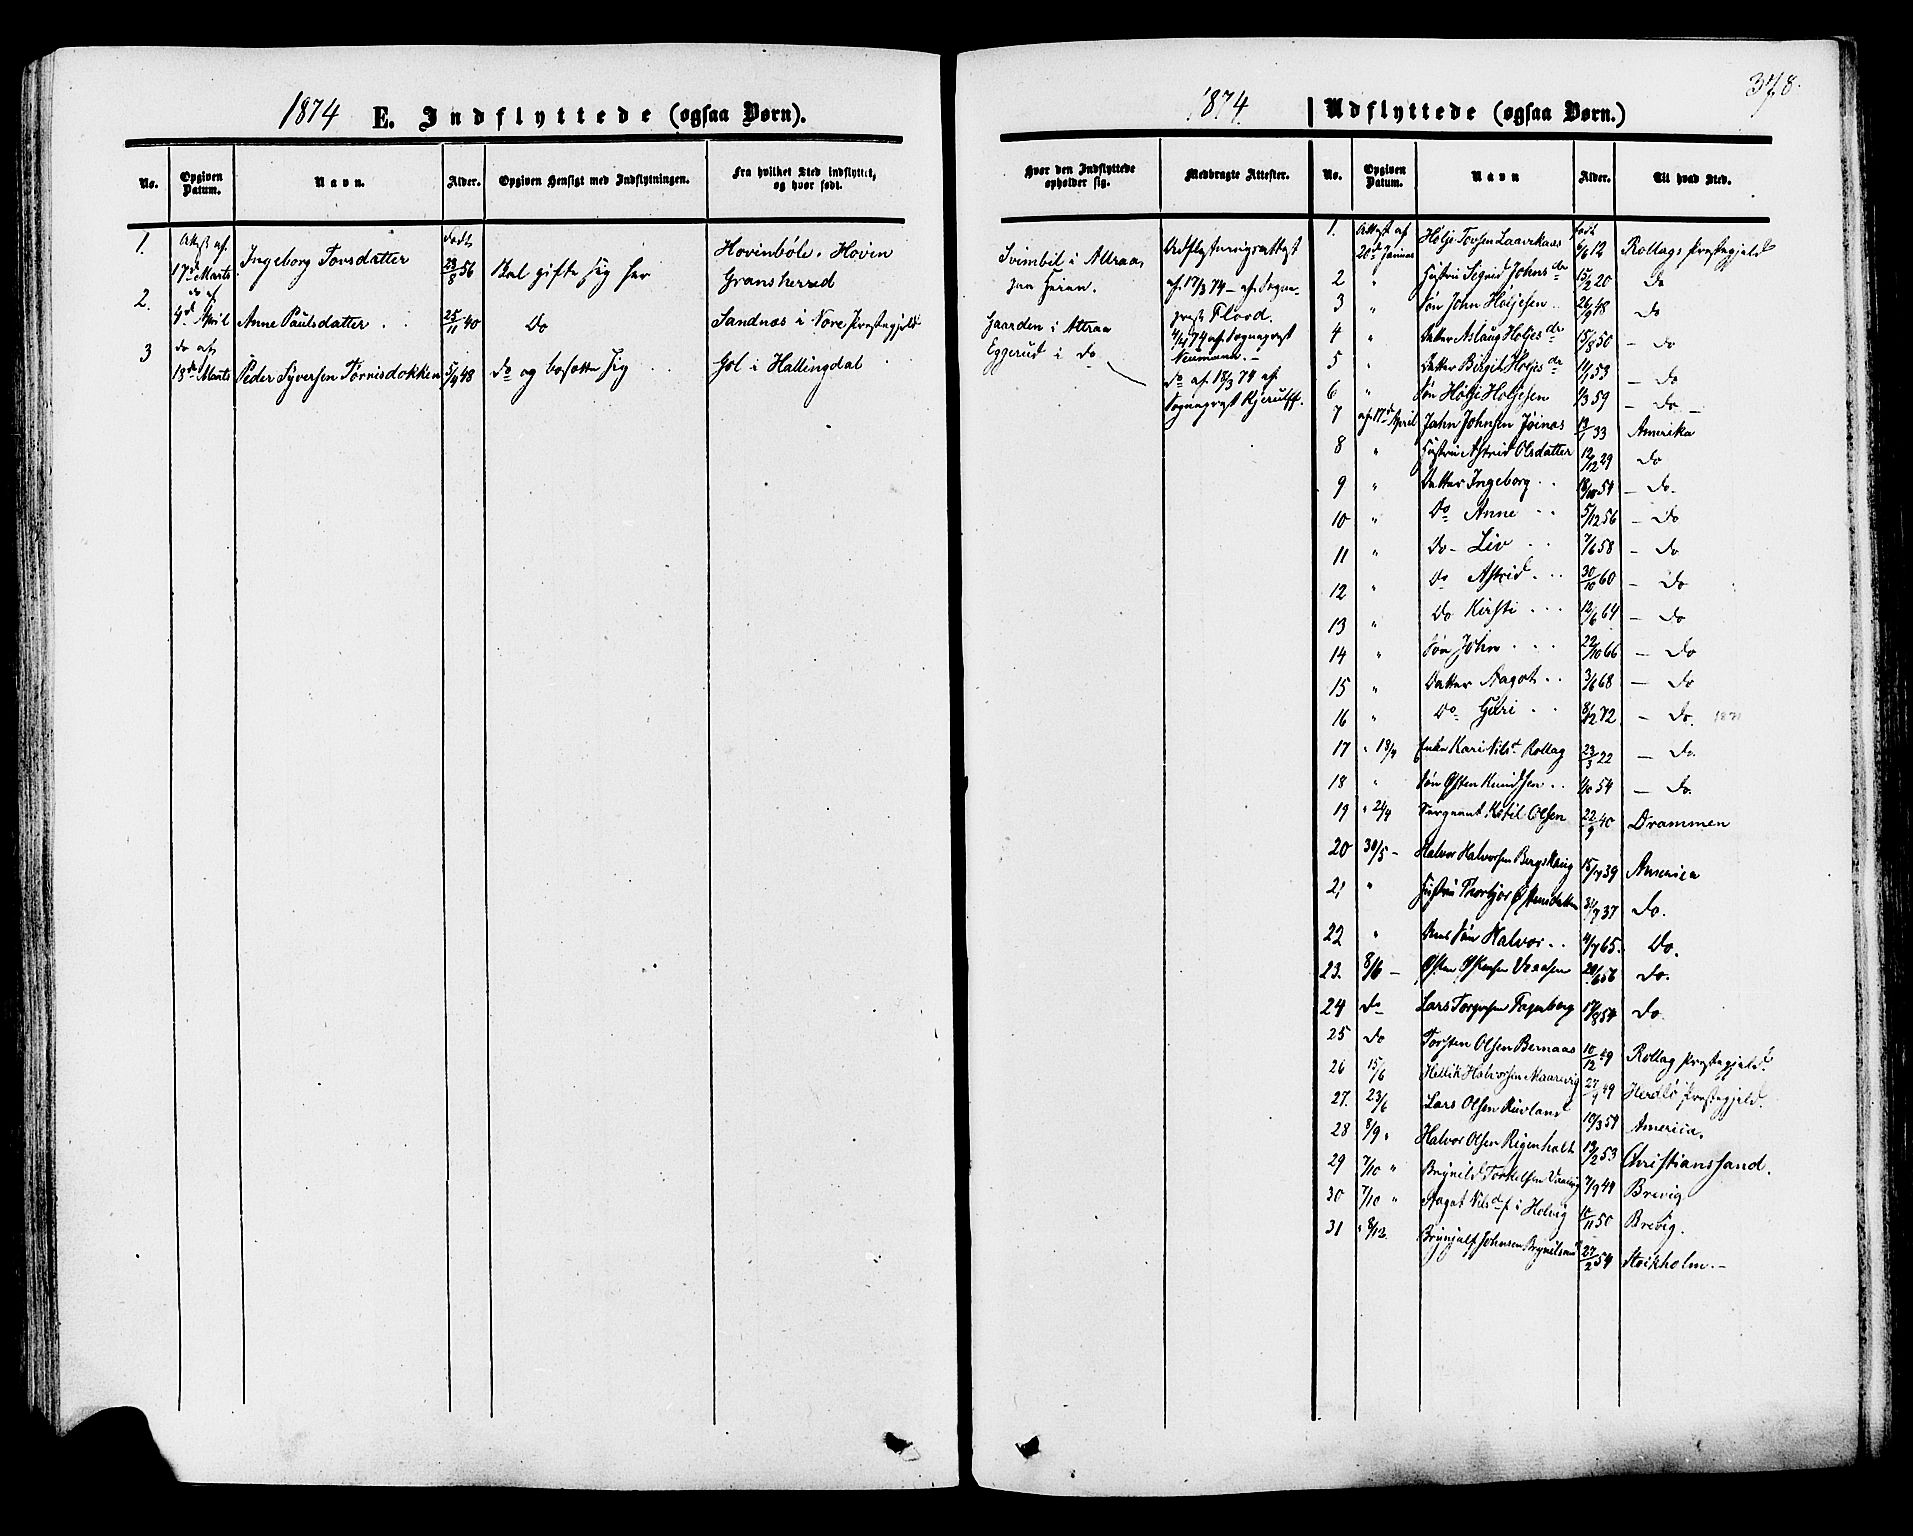 1874 E. Indflyttede (ogsaa Børn).
No. Opgiven Datum. Navn. Alder. Opgiven Hensigt med Indflytningen. Fra hvilket Sted indflyttet, og hvor født.
1. Attest af 17de Marts Ingeborg Torsdatter født 23/8 56 Skal gifte sig her Hovinbøle. Hovin Gransherred
2. do af 4d April Anne Paulsdatter 25/11 40 Do Sandnæs i Nore Præstegjeld
3 do af 18de Marts Peder Syversen Tørrisdokken 5/4 48 do og bosætte sig Gol i Hallingdal
378.
1874. Udflyttede (ogsaa Børn.)
Hvor den Indflyttede opholder sig. Medbragte Attester. No. Opgiven Datum. Navn Alder. Til hvad Sted.
Svimbil i Attraa
paa Garden i Attraa
Eggerud i do
Udflytningsattest
af 17/3 74 - af Sogne-
præst Flood.
4/4 74 af Sognepræst
Neumann.-
do af 18/3 74 af
Sognepræst Kjerulff.
1. Attest af 20de Januar Høljе Torsen Laavekaas født 6/6 12 Rollags Præstegjeld
2 " Hustru Sigrid Johnsdr 15/2 20 Do
3 " Søn John Høljesen 26/9 48 Do
4 " Datter Aslaug Høljesdr 15/8 50 - Do
5 " Datter Birgit Høljesdr 14/1 53 - Do
6 " Søn Hølje Høljesen 1/3 59 - Do -
7 af 17d April John Johnsen Jøinaas 13/1 33 Amerika
8 " Hustru Astrid Olsdatter 12/12 29 Do
9 " Datter Ingeborg 18/10 54 - Do.
10 " Do Anne 5/12 56 - Do
11 " Do - Liv 7/6 58 - Do
12 " Do Astrid 30/10 60 - Do
13 " Do Kirsti 12/6 64 - Do
14 " Søn John 22/10 66 - Do
15 " Datter Aagot 3/6 68 - Do
16 " Do Guri 8/12 72 - Do.
17 " 18/4 Enke Kari Nilsd. Rollag 23/3 22 - Do.
18 " Søn Østen Knudsen 1/10 54 - Do.
19 " 24/4 Sergeant Ketil Olsen 22/9 40 Drammen
20 30/5 - Halvor Halvorsen Bergskaug 15/4 39 America
21 " Hustru Thorbjør Østensdatter 31/7 37 Do.
22 " Søn Halvor 4/7 65. Do.
23. 8/6 - Østen Østensen Vaaesen 20/6 56 Do.
24 do Lars Torgersen Fagerberg 17/8 54 Do.
25 Do Torsten Olsen Bernaas 10/12 49 Rollag Præstegjeld.
26 15/6 Hellik Halvorsen Maarevig 27/9 49 Herdlø Præstegjeld.
27. 23/6 Lars Olsen Ruvland 10/3 54 America.
28 8/9 " Halvor Olsen Rigenholt 19/2 53 Christianssand.
29 7/10 " Brynild Torkelsen 7/9 44 Brevig
30 7/10 " Aagot Nilsd i Holvig 10/11 50 Brevig.
31 " 8/12. Brynjulf Johnsen 27/2 54 Stokholm.-